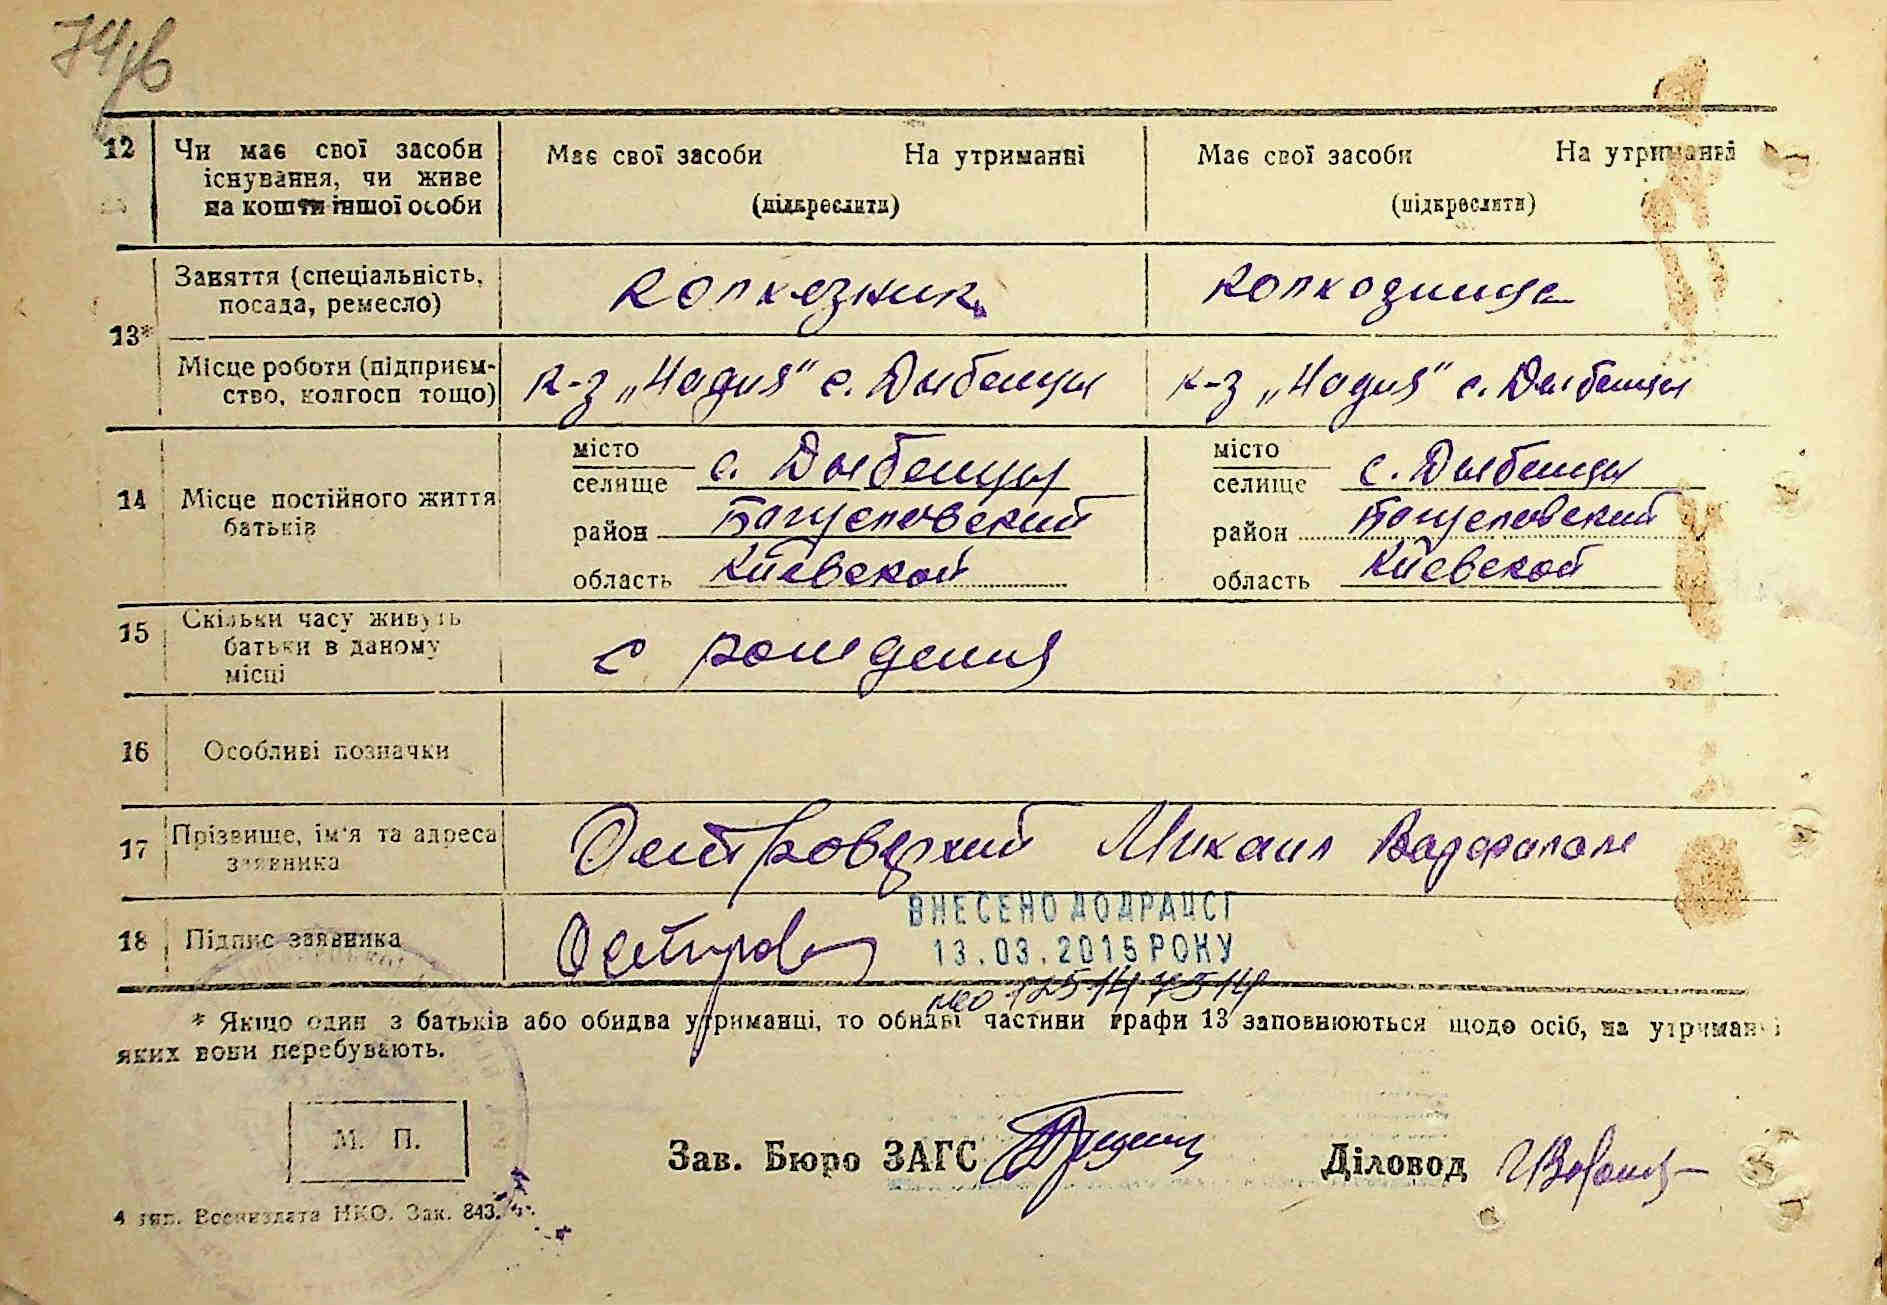 12 Чи має свої засоби існування, чи живе на кошти іншої особи
Має свої засоби На утриманні
(підкреслити)
Має свої засоби На утриманні
(підкреслити)
13*
Заняття (спеціальність, посада, ремесло)
колхозник
колхозница
Місце роботи (підприємство, колгосп тощо)
к-з „Надия" с. Дыбенцы
к-з „Надия" с. Дыбенцы
14 Місце постійного життя батьків
місто
селище с. Дыбенцы
район Богуславский
область Киевской
місто
селище с. Дыбенцы
район Богуславский
область Киевской
15 Скільки часу живуть батьки в даному місці
с рождения
16 Особливі позначки
17 Прізвище, ім'я та адреса заявника
Островский Михаил
18 Підпис заявника
ВНЕСЕНО ДО ДРАЦСГ
13.03.2015 РОКУ
* Якщо один з батьків або обидва утриманці, то обидві частини графи 13 заповнюються щодо осіб, на утриманні
яких вони перебувають.
М. П.
Зав. Бюро ЗАГС
Діловод
4 тип. Воениздата НКО. Зак. 843.